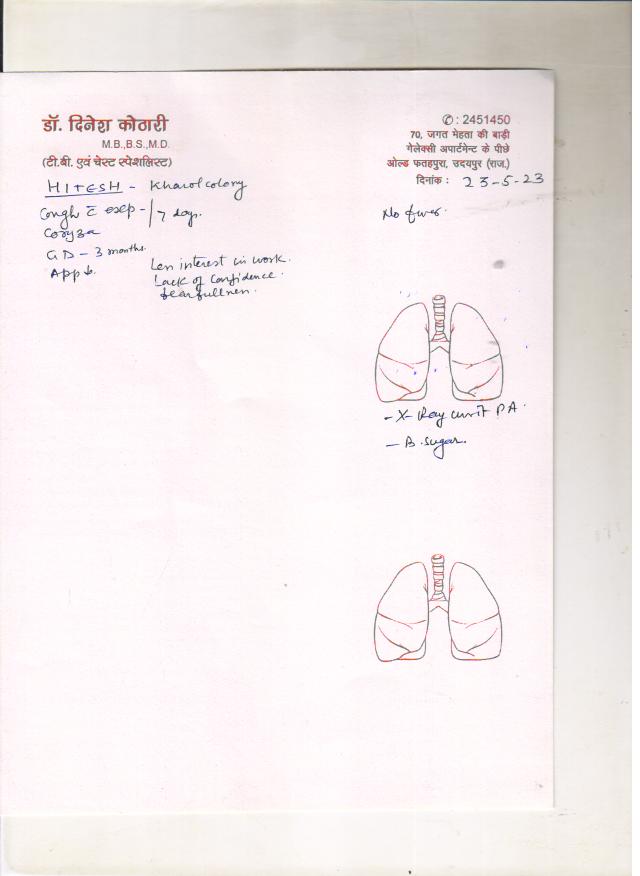 डॉ. दिनेश कोठारी
M.B.,B.S.,M.D.
(टी.बी. एवं चेस्ट स्पेशलिस्ट)
✆ : 2451450
70, जगत मेहता की बाड़ी
गेलेक्सी अपार्टमेन्ट के पीछे
ओल्ड फतहपुरा, उदयपुर (राज.)
दिनांक : 23-5-23
HITESH - Kharol colony
Cough c̄ exp - / 7 days.
Coryza
No fever.
GD - 3 months.
App ↓.
Less interest in work.
Lack of confidence.
fearfullness.
- X-Ray PA.
- B. Sugar.